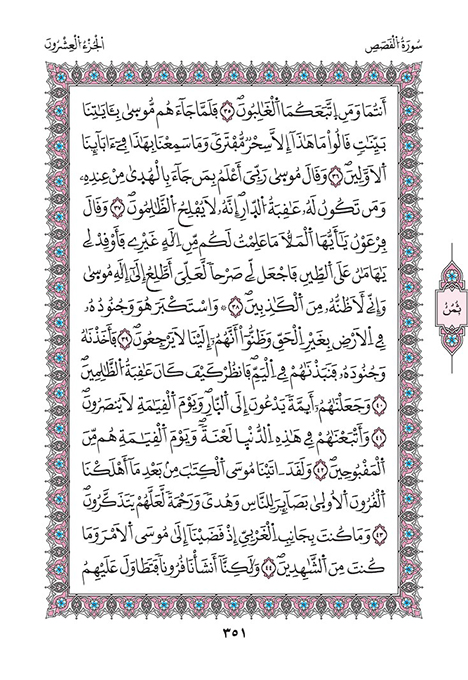 سُورَةُ الْقَصَصِ
الْجُزْءُ الْعِشْرُونَ
أَنتُمَا وَمَنِ اِتَّبَعَكُمَا اَلْغَٰلِبُونَۖ ٣٥ فَلَمَّا جَآءَهُم مُّوس۪ىٰ بِـَٔايَٰتِنَا
بَيِّنَٰتٖ قَالُواْ مَا هَٰذَآ إِلَّا سِحْرٞ مُّفْتَرٗى وَمَا سَمِعْنَا بِهَٰذَا فِےٓ ءَابَآئِنَا
اَلَاوَّلِينَۖ ٣٦ وَقَالَ مُوس۪ىٰ رَبِّيَ أَعْلَمُ بِمَن جَآءَ بِالْهُد۪ىٰ مِنْ عِندِهِۦ
وَمَن تَكُونُ لَهُۥ عَٰقِبَةُ اُلدّ۪ارِۖ إِنَّهُۥ لَا يُفْلِحُ اُلظَّٰلِمُونَۖ ٣٧ وَقَالَ
فِرْعَوْنُ يَٰٓأَيُّهَا اَلْمَلَأُ مَا عَلِمْتُ لَكُم مِّنِ اِلَٰهٍ غَيْرِے فَأَوْقِدْ لِے
يَٰهَٰمَٰنُ عَلَى اَلطِّينِ فَاجْعَل لِّے صَرْحاٗ لَّعَلِّيَ أَطَّلِعُ إِلَىٰٓ إِلَٰهِ مُوس۪ىٰ
وَإِنِّے لَأَظُنُّهُۥ مِنَ اَلْكَٰذِبِينَۖ ٣٨ وَاسْتَكْبَرَ هُوَ وَجُنُودُهُۥ
فِے اِلَارْضِ بِغَيْرِ اِلْحَقِّ وَظَنُّوٓاْ أَنَّهُمُۥٓ إِلَيْنَا لَا يَرْجِعُونَۖ ٣٩ فَأَخَذْنَٰهُ
وَجُنُودَهُۥ فَنَبَذْنَٰهُمْ فِے اِلْيَمِّۖ فَانظُرْ كَيْفَ كَانَ عَٰقِبَةُ اُلظَّٰلِمِينَۖ
٤٠ وَجَعَلْنَٰهُمُۥٓ أَئِمَّةٗ يَدْعُونَ إِلَى اَلنّ۪ارِۖ وَيَوْمَ اَلْقِيَٰمَةِ لَا يُنصَرُونَۖ
٤١ وَأَتْبَعْنَٰهُمْ فِے هَٰذِهِ اِلدُّنْي۪ا لَعْنَةٗۖ وَيَوْمَ اَلْقِيَٰمَةِ هُم مِّنَ
اَلْمَقْبُوحِينَۖ ٤٢ وَلَقَدَ اٰتَيْنَا مُوسَى اَلْكِتَٰبَ مِنۢ بَعْدِ مَآ أَهْلَكْنَا
اَلْقُرُونَ اَلُاول۪ىٰ بَصَآئِرَ لِلنَّاسِ وَهُدٗى وَرَحْمَةٗ لَّعَلَّهُمْ يَتَذَكَّرُونَۖ
٤٣ وَمَا كُنتَ بِجَانِبِ اِلْغَرْبِيِّ إِذْ قَضَيْنَآ إِلَىٰ مُوسَى اَلَامْرَ وَمَا
كُنتَ مِنَ اَلشَّٰهِدِينَۖ ٤٤ وَلَٰكِنَّآ أَنشَأْنَا قُرُوناٗ فَتَطَاوَلَ عَلَيْهِمُ
ثُمُنُ
٣٥١